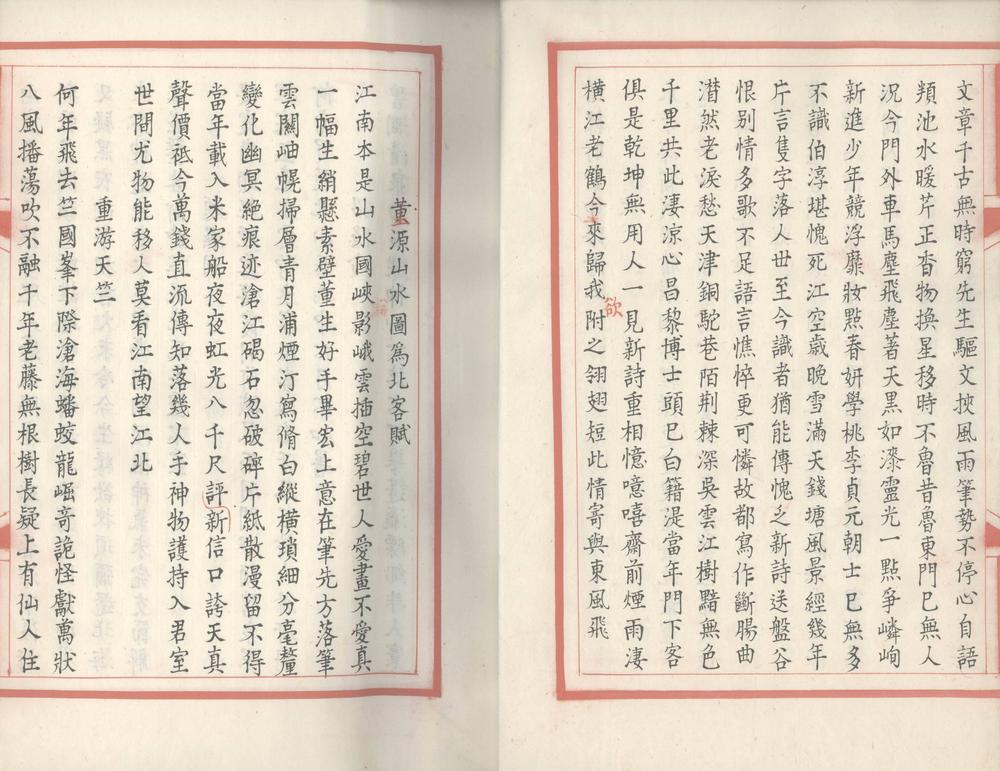 文章千古無時窮先生驅文挾風雨筆勢不停心自語
頖池水暖芹正香物換星移時不魯昔魯東門巳無人
況今門外車馬塵飛塵著天黑如漆靈光一點爭嶙峋
新進少年競浮靡妝點春妍學桃李貞元朝士巳無多
不識伯淳堪愧死江空歲晚雪滿天錢塘風景經幾年
片言隻字落人世至今識者猶能傳愧乏新詩送盤谷
恨别情多歌不足語言憔悴更可憐故都寫作斷腸曲
潸然老淚愁天津銅駝巷陌荆棘深吳雲江樹黯無色
千里共此淒涼心昌黎博士頭巳白籍湜當年門下客
俱是乾坤無用人一見新詩重相憶噫嘻齋前煙雨淒
橫江老鶴今來歸我附之翎翅短此情寄與東風飛
欲
董源山水圖爲北客賦
江南本是山水國峽影峨雲插空碧世人愛畫不愛真
一幅生綃懸素壁董生好手畢宏上意在筆先方落筆
雲關岫幌掃層青月浦煙汀寫脩白縱橫瑣細分毫釐
變化幽冥絶痕迹滄江碣石忽破碎片紙散漫留不得
當年載入米家船夜夜虹光八千尺評新信口誇天真
聲價祇今萬錢直流傳知落幾人手神物護持入君室
世間尤物能移人莫看江南望江北
重游天竺
何年飛去竺國峯下際滄海蟠蛟龍崛奇詭怪獻萬狀
八風播蕩吹不融千年老藤無根樹長疑上有仙人住